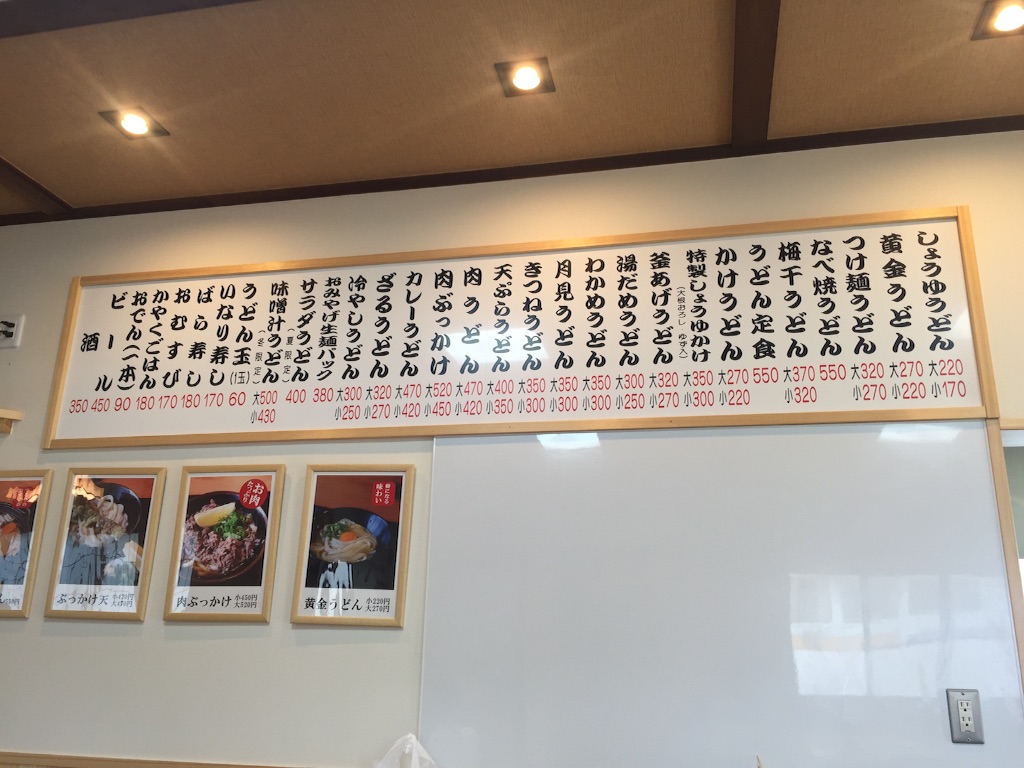 しょうゆうどん 大220 小170
黄金うどん 大270 小220
つけ麺うどん 大320 小270
なべ焼うどん 550
梅干うどん 大370 小320
うどん定食 550
かけうどん 大270 小220
特製しょうゆかけ (大根おろし ゆず入) 大350 小300
釜あげうどん 大320 小270
湯だめうどん 大300 小250
わかめうどん 大350 小300
月見うどん 大350 小300
きつねうどん 大350 小300
天ぷらうどん 大400 小350
肉うどん 大470 小420
肉ぶっかけ 大520 小450
カレーうどん 大470 小420
ざるうどん 大320 小270
冷やしうどん 大300 小250
おみやげ生麺パック 380
サラダうどん (夏限定) 400
味噌汁うどん (冬限定) 大500 小430
うどん玉(1玉) 60
いなり寿し 170
ばら寿し 180
おむすび 170
かやくごはん 180
おでん(一本) 90
ビール 450
酒 350
ぶっかけ天
お肉たっぷり
肉ぶっかけ 小450円 大520円
味わい
黄金うどん 小220円 大270円